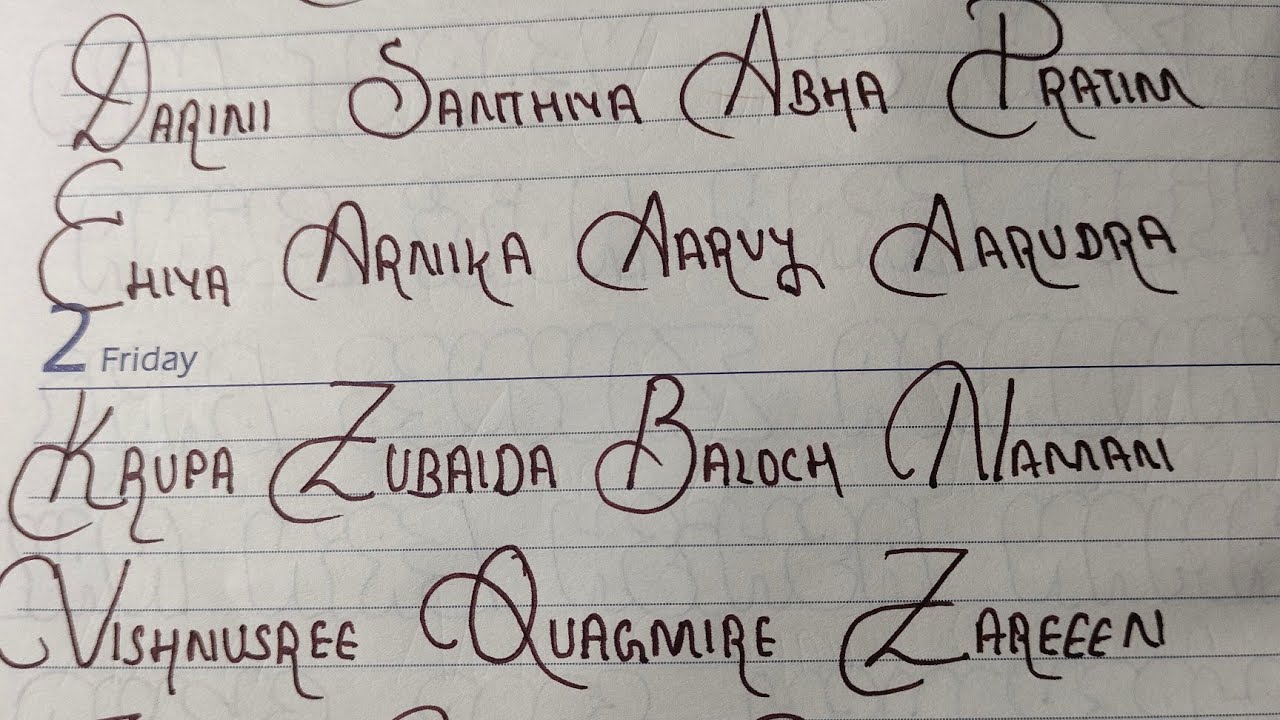 DARINI SANTHIYA ABHA PRATIM
EHIYA ARNIKA AARVY AARUDRA
2 Friday
KRUPA ZUBAIDA BALOCH NAMAN
VISHNUSREE QUAGMIRE ZAREEEN